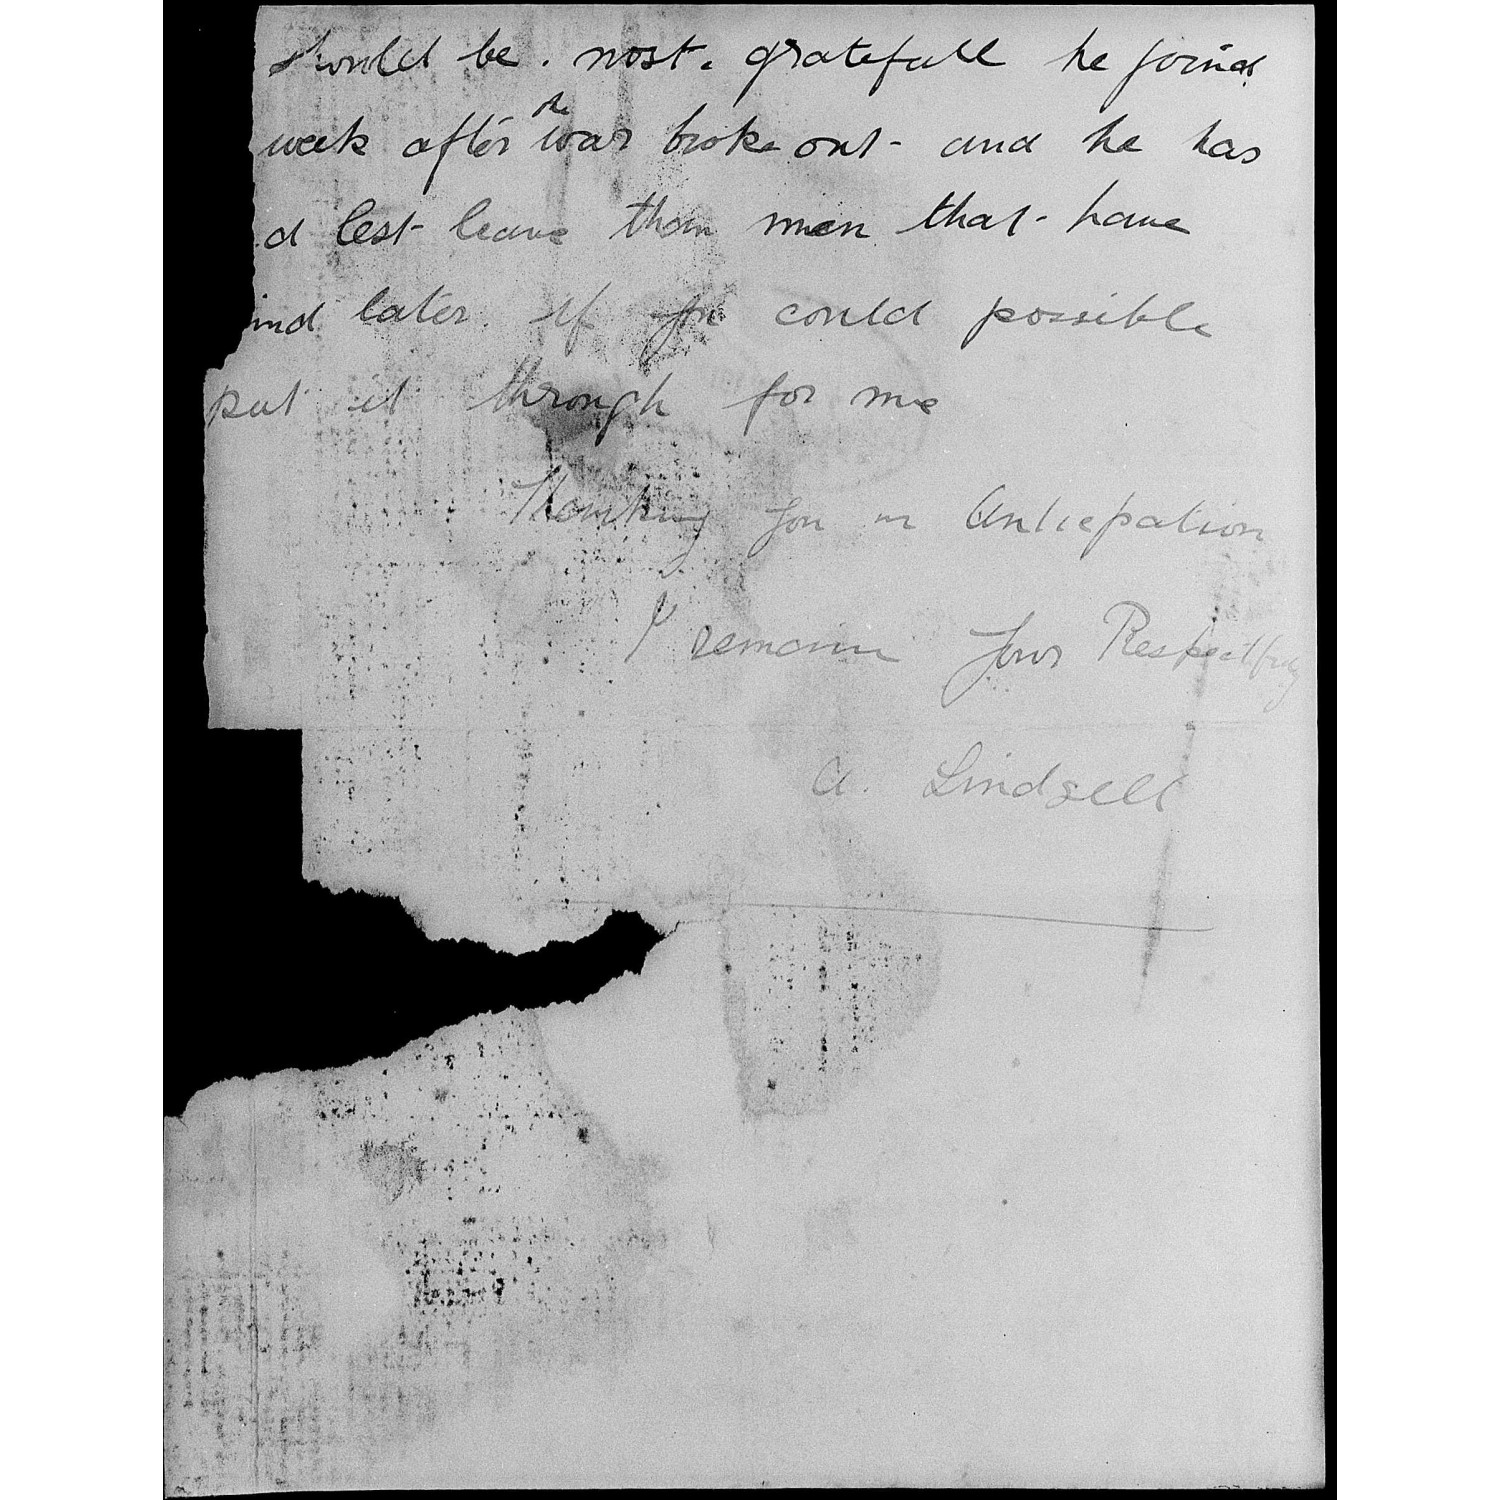 should be. most. gratefull he joind
week after the war broke out - and he has
d lest leave than men that - have
ind later. If you could possible
put it through for me
Thanking you in Anticpation
I remain yours Respectfuly
A. Lindsell